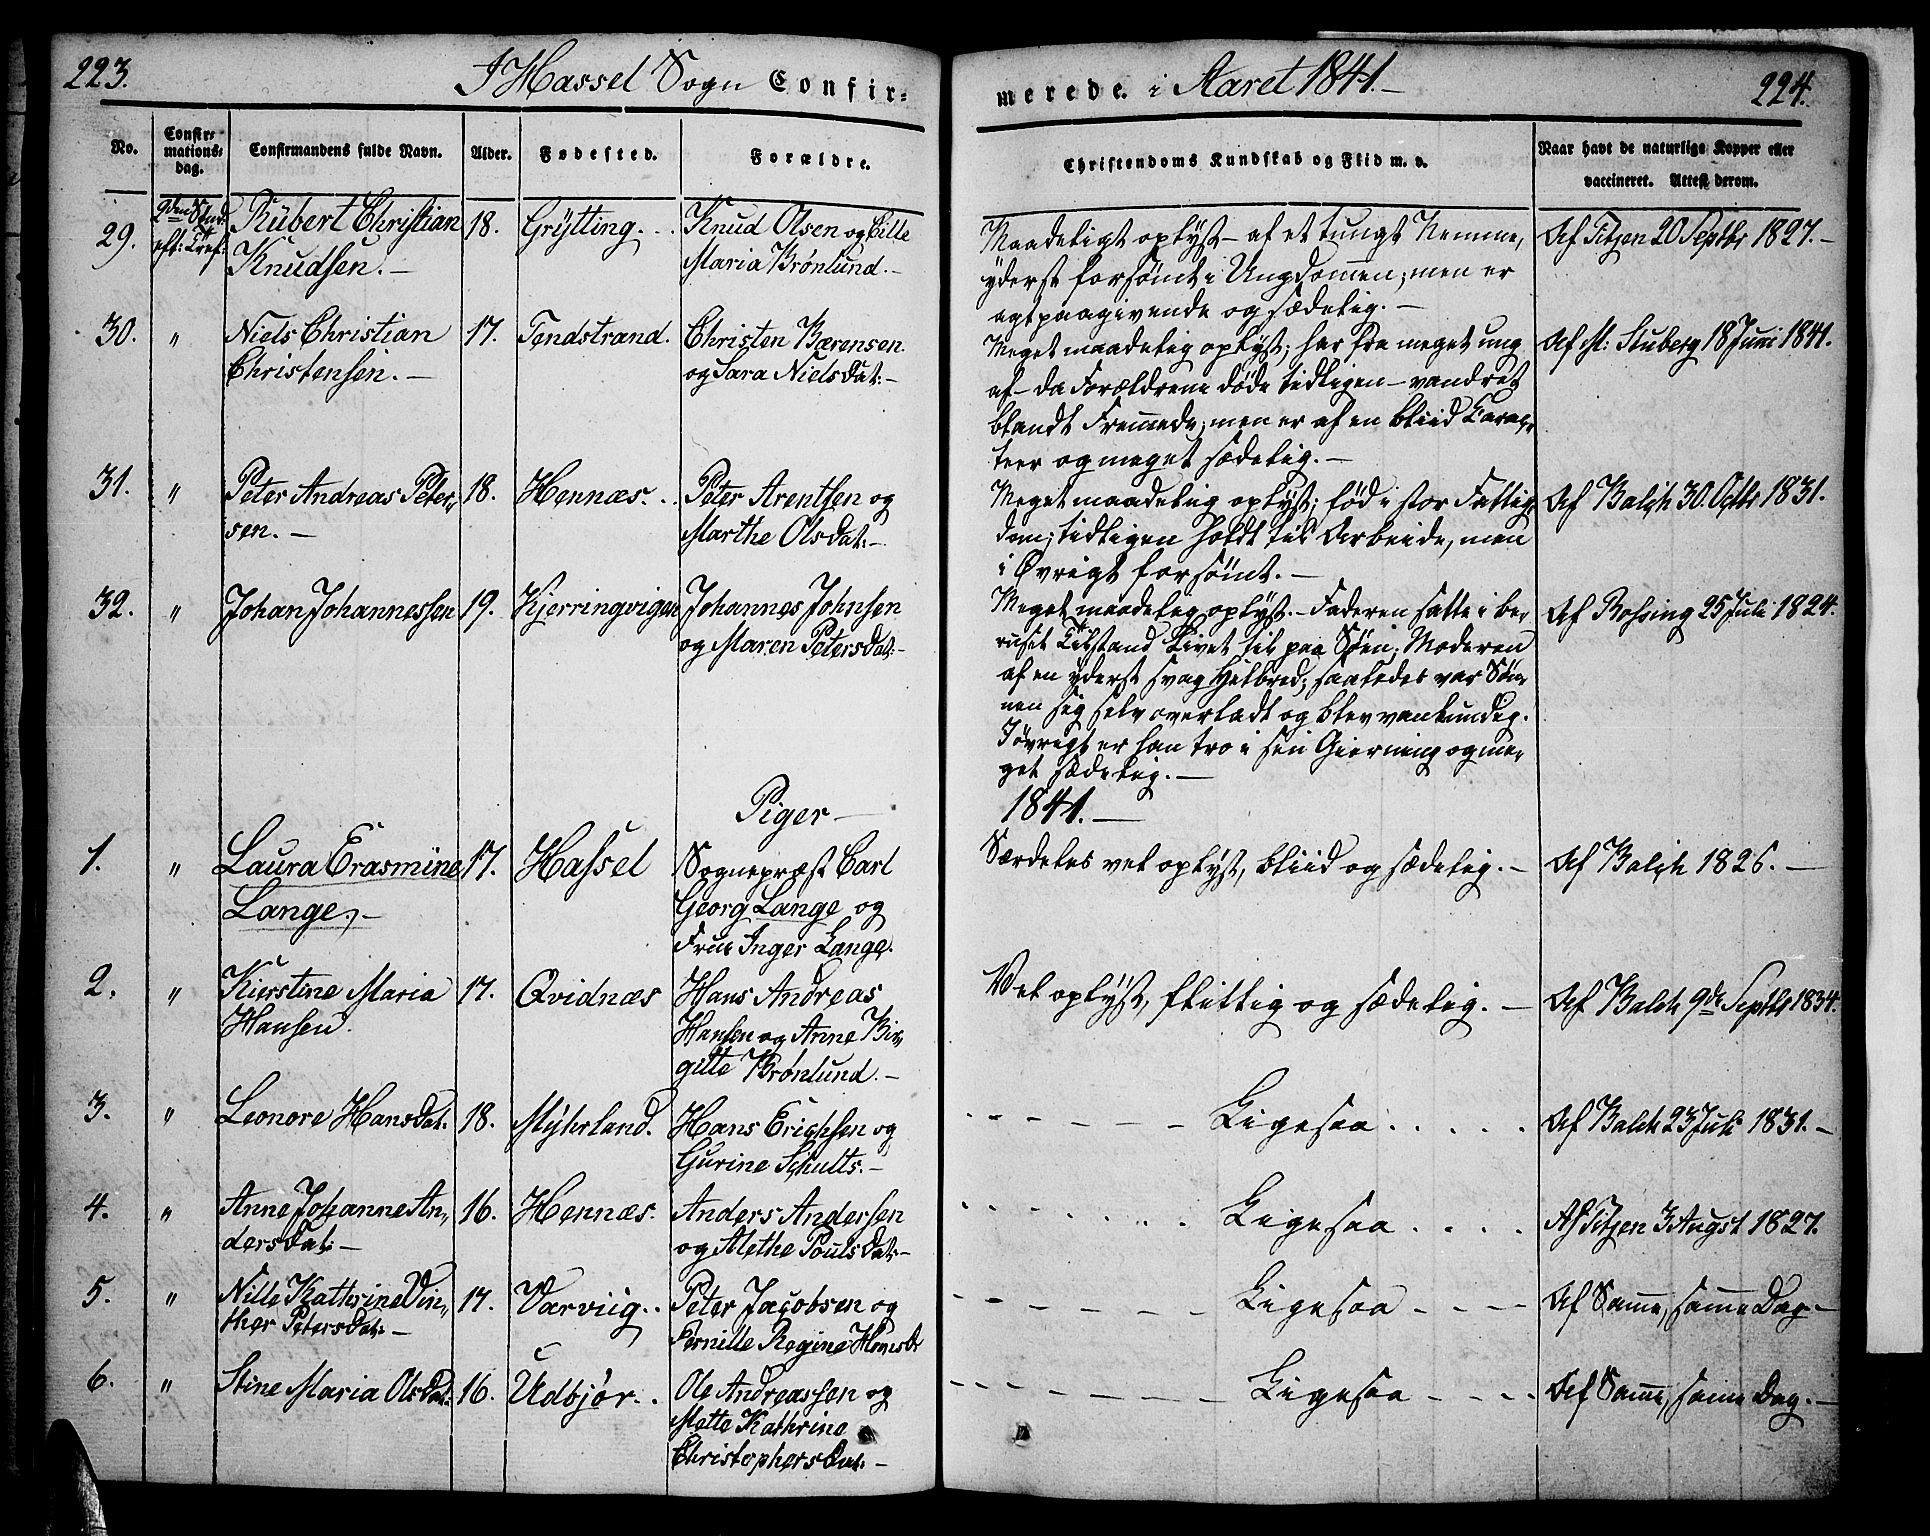 223.
I Hassel Sogn Confir-
merede. i Aaret 1841.-
224.
No.
Confir-
mations-
dag.
Confirmandens fulde Navn.
Alder.
Fødested.
Forældre.
Christendoms Kundskab og Flid m. v.
Naar havt de naturlige Kopper eller
vaccineret. Attest derom.
29.
9den Sønd.
eft: Tref:
Rübert Christian
Knudsen.-
18.
Grÿtting.
Knud Olsen og Cille
Maria Brønlund.-
Maadeligt oplyst - af et tungt Nemme,
yderst forsømt i Ungdommen; men er
agtpaagivende og sædelig.-
Af Titzen 20 Septbr 1827.-
30.
"
Niels Christian
Christensen.-
17.
Tendstrand.
Christen Bærensen
og Sara Nielsdat:-
Meget maadelig oplyst; har fra meget ung
af - da Forældrene døde tidligen - vandret
blandt Fremmede; men er af en bliid Karac-
teer og meget sædelig.-
Af H: Stuberg 18 Juni 1841.
31.
"
Peter Andreas Peter-
sen.-
18.
Hennæs.
Peter Arentsen og
Marthe Olsdat:-
Meget maadelig oplyst; fød i stor Fattig-
dom; tidligen holdt til Arbeide, men
i Øvrigt forsømt.-
Af Balch 30. Octbr 1831.
32.
"
Johan Johannessen
19.
Kjerringvigen
Johannes Johnsen
og Maren Petersdat:-
Meget maadelig oplyst.- Faderen satte i be-
ruset Tilstand Livet til paa Søen; Moderen
af en yderst svag Helbred; saaledes var Søn-
nen sig selv overladt og blev vankundig.
Iøvrigt er han tro i sin Gierning og me-
get sædelig.-
Af Rossing 25 Juli 1824.
Piger-
1841.-
1.
"
Laura Erasmine
Lange.-
17.
Hassel
Sognepræst Carl
Georg Lange og
Frue Inger Lange.
Særdeles vel oplyst, bliid og sædelig.-
Af Balch 1826.-
2.
"
Kierstine Maria
Hansen.
17.
Qvidnæs
Hans Andreas
Hansen og Anne Bir-
gitte Brønlund.-
Vel oplÿst, flittig og sædelig.-
Af Balch 9de Septbr 1834.
3.
"
Leonore Hansdat:
18.
Mÿhrland.
Hans Erichsen og
Gurine Schults.-
Ligesaa
Af Balch 23 Juli 1831.-
4.
"
Anne Johanne An-
dersdat:-
16.
Hennæs.
Anders Andersen
og Alethe Poulsdat:-
Ligesaa
Af Titzen 3 Augst 1827.
5.
"
Nille Kathrine Vin-
ther Petersdat:-
17.
Varviig.
Peter Jacobsen og
Pernille Regine
Ligesaa
Af Samme, samme Dag-
6.
"
Stine Maria Olsdat:
16.
Udbjør.
Ole Andreassen og
Mette Kathrine
Christophersdat:-
Ligesaa
Af Samme, samme Dag.-